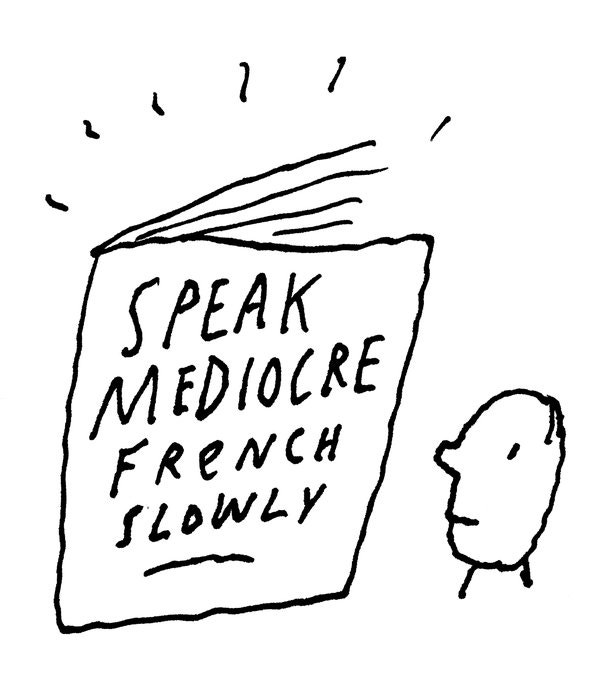 SPEAK
MEDIOCRE
FReNCH
SLOWLY